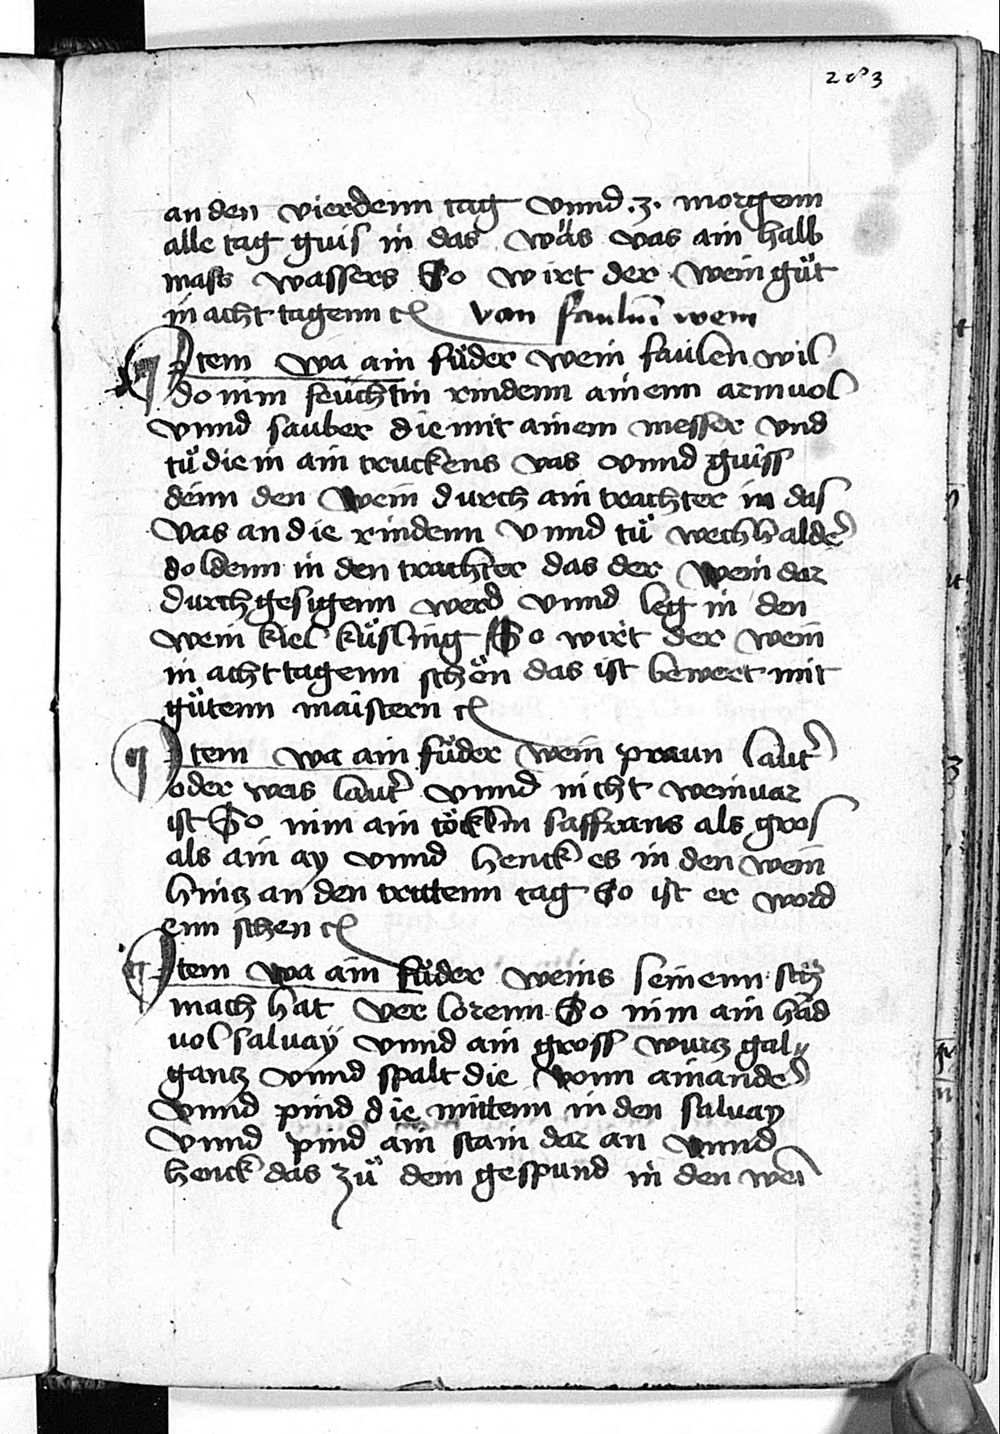 283
an den vierdenn tag vnnd .3. morgenn
alle tag guis in das wäs vas ain halb
mass wassers So wirt der wein gůt
in acht tagenn etc von faulm̄ wein
Item wa ain fůder wein faulen wil
do nim feuchtin rindenn ainenn armuol
vnnd sauber die mit ainem messer vnd
tů die in ain truckens vas vnnd guiss
denn den wein durch ain trachter in das
vas an die rindenn vnnd tů wechhalder
doldenn in den trachter das der wein dar
durch gesigenn werd vnnd leg in den
wein kiel küsling So wirt der wein
in acht tagenn schön das ist bewert mit
gůtenn maistern etc
Item wa ain fůder wein praun laut̄
oder was laut̄ vnnd nicht weinuar
ist So nim ain töcklin saffrans als gros
als ain ay vnnd henck es in den wein
hintz an den trittenn tag So ist er word
enn schen etc
Item wa ain fůder weins seinenn
mach hat ver lorenn So nim ain hād
uol saluay vnnd ain gross wurtz gal„
gantz vnnd spalt die vonn ainander
vnnd pind die mittenn in den saluay
vnnd pind ain stain dar an vnnd
henck das zů dem gespund in den weī